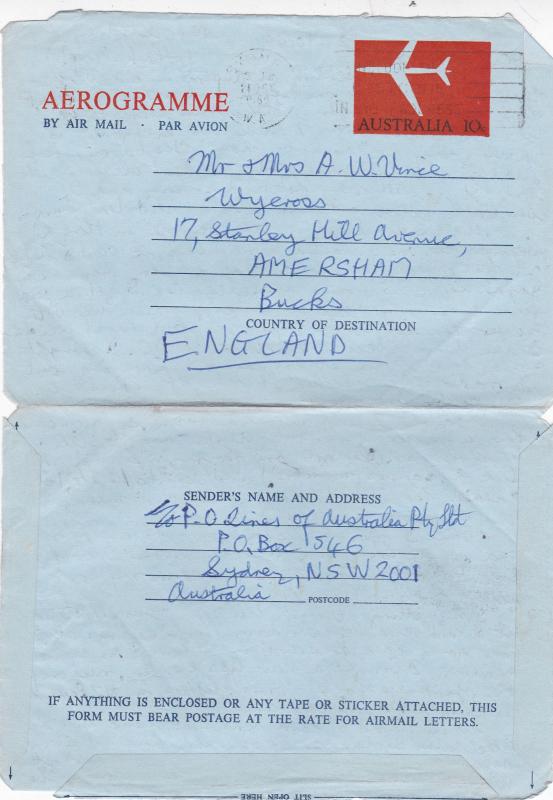 AEROGRAMME
BY AIR MAIL · PAR AVION
AUSTRALIA 10c
Mr & Mrs A. W. Vince
Wycross
17, Stanley Hill Avenue,
AMERSHAM
Bucks
COUNTRY OF DESTINATION
ENGLAND
SENDER'S NAME AND ADDRESS
c/o P.O Lines of Australia Pty Ltd
P.O. Box 546
Sydney, NSW 2001
Australia
POSTCODE
IF ANYTHING IS ENCLOSED OR ANY TAPE OR STICKER ATTACHED, THIS
FORM MUST BEAR POSTAGE AT THE RATE FOR AIRMAIL LETTERS.
SLIT OPEN HERE